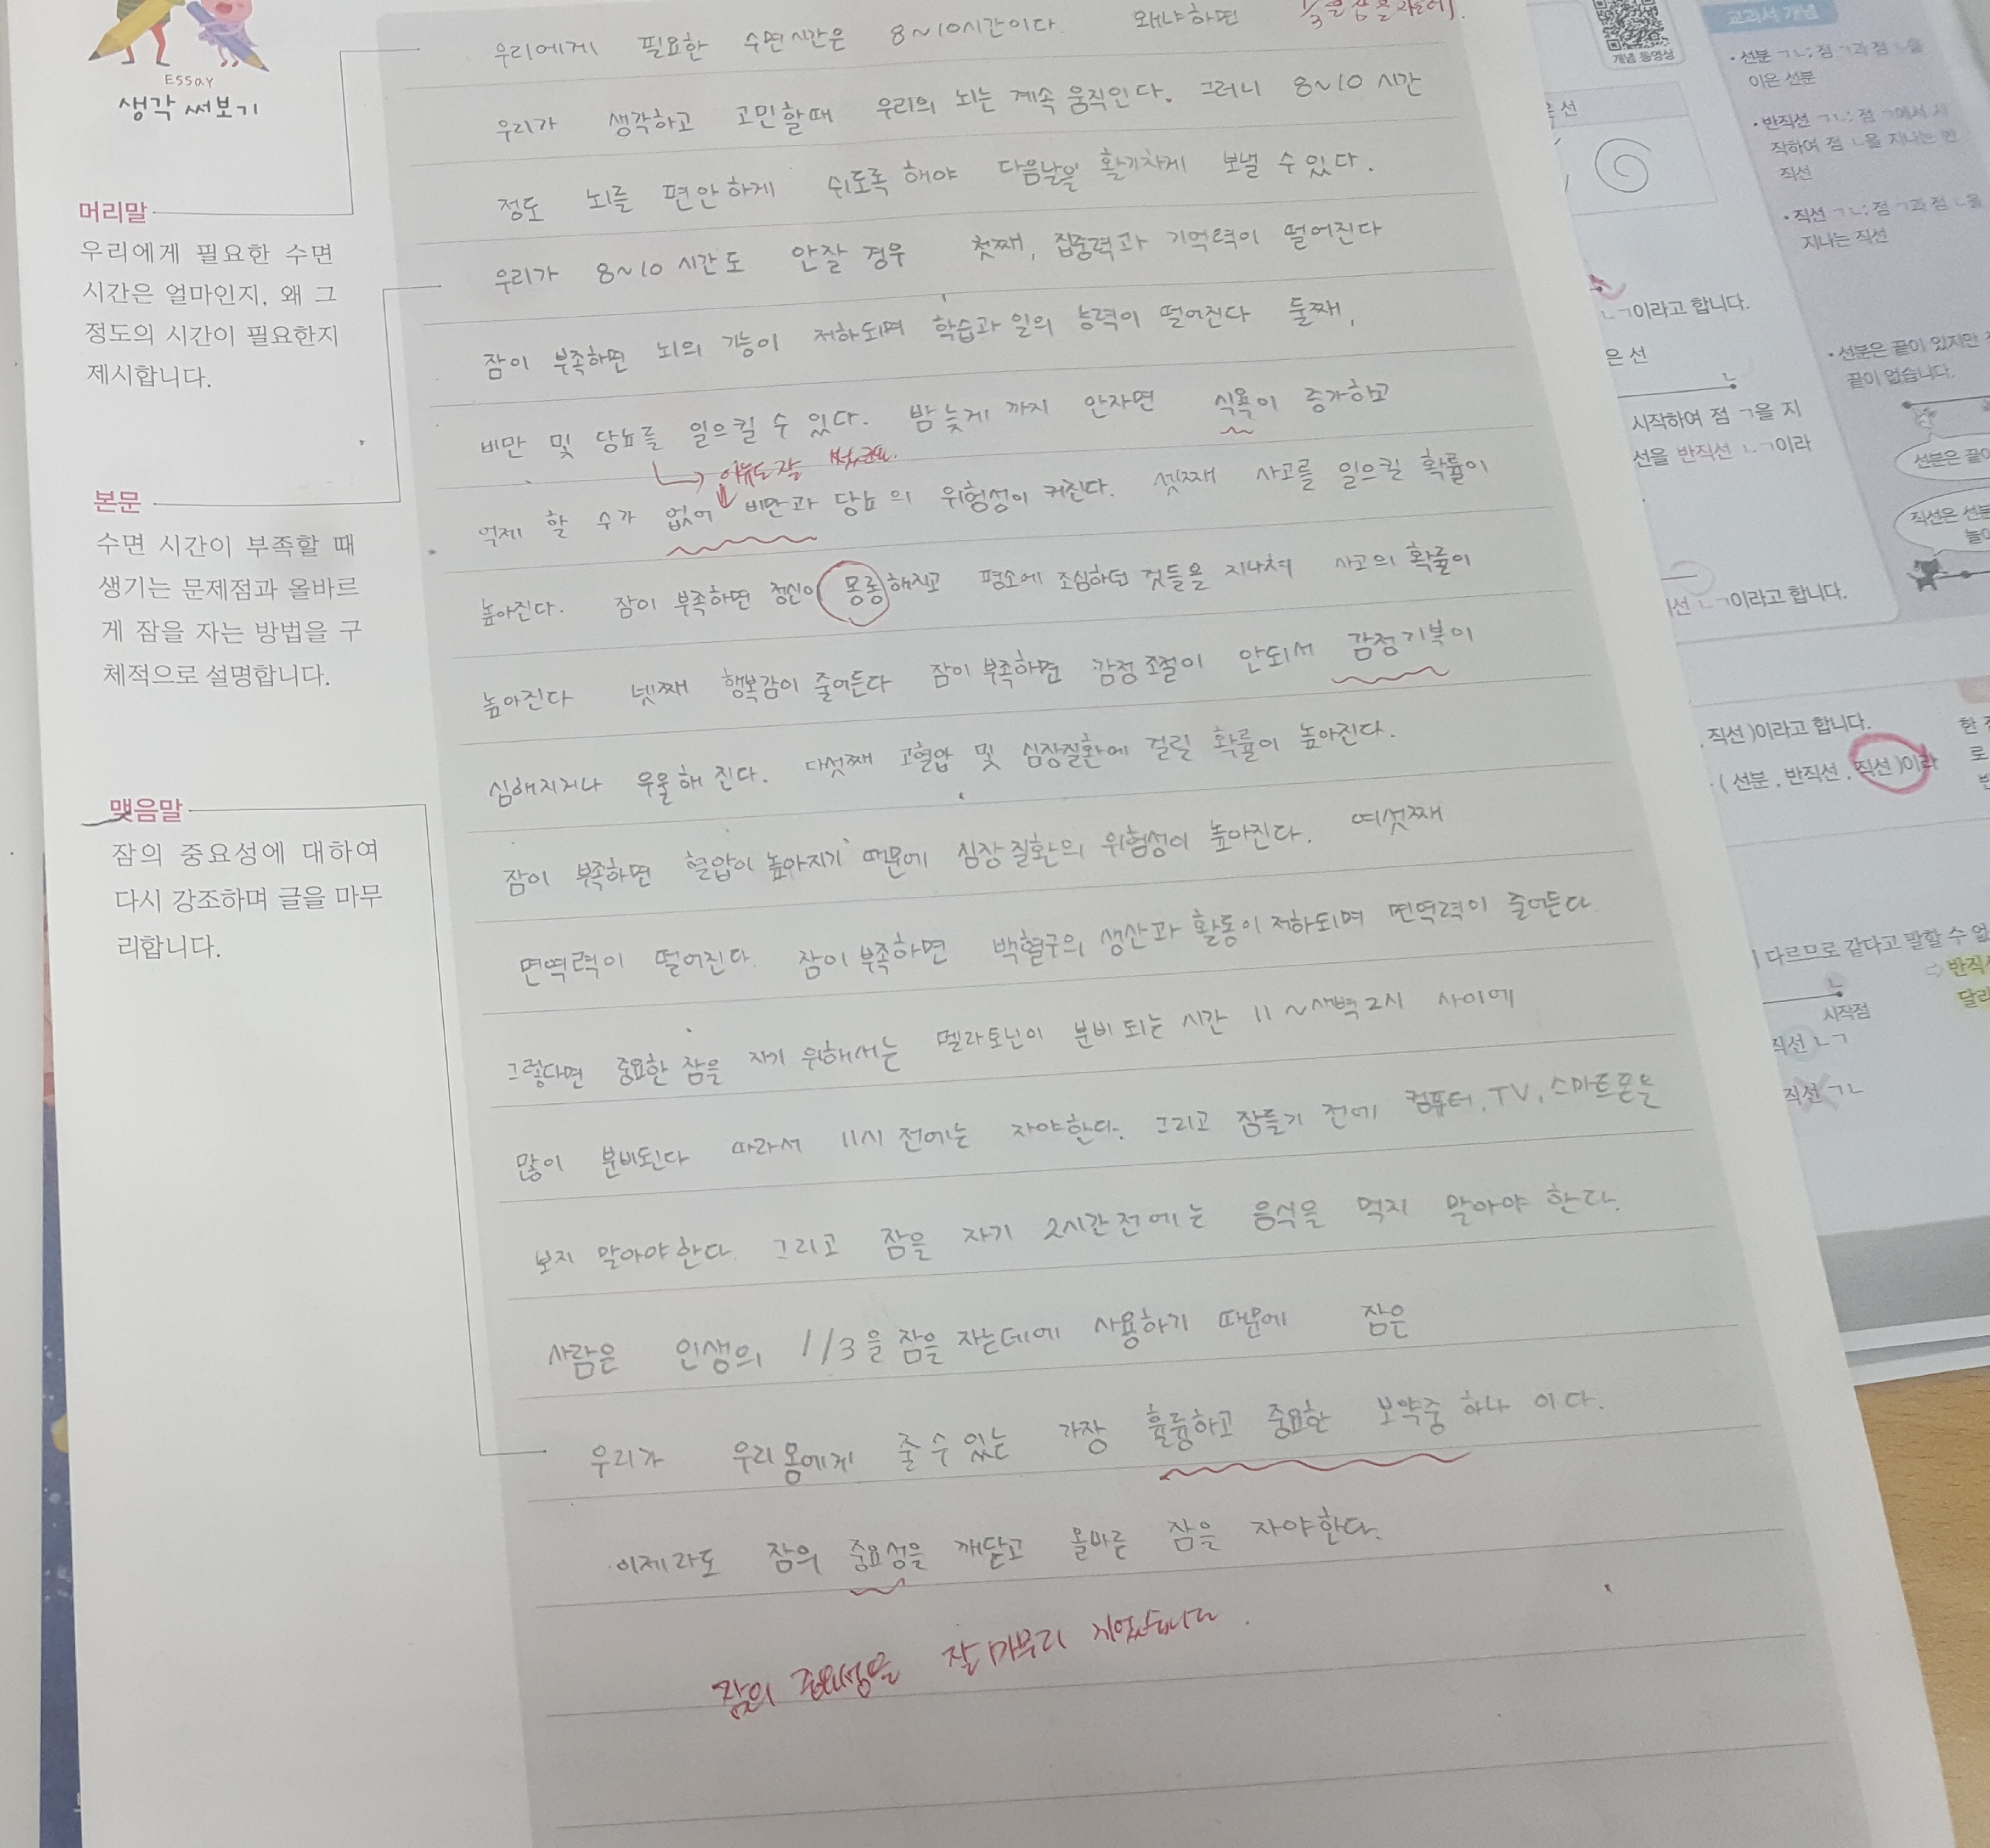 Essay
생각 써보기
머리말
우리에게 필요한 수면
시간은 얼마인지, 왜 그
정도의 시간이 필요한지
제시합니다.
본문
수면 시간이 부족할 때
생기는 문제점과 올바르
게 잠을 자는 방법을 구
체적으로 설명합니다.
맺음말
잠의 중요성에 대하여
다시 강조하며 글을 마무
리합니다.
우리에게 필요한 수면시간은 8~10시간이다. 왜냐하면
우리가 생각하고 고민할때 우리의 뇌는 계속 움직인다. 그러니 8~10 시간
정도 뇌를 편안하게 쉬도록 해야 다음날을 활기차게 보낼 수 있다.
우리가 8~10 시간도 안잘 경우 첫째, 집중력과 기억력이 떨어진다
잠이 부족하면 뇌의 기능이 저하되며 학습과 일의 능력이 떨어진다 둘째,
비만 및 당뇨를 일으킬 수 있다. 밤 늦게 까지 안자면 식욕이 증가하고
이유도 잘
억제 할 수가 없어 비만과 당뇨의 위험성이 커진다. 셋째 사고를 일으킬 확률이
높아진다. 잠이 부족하면 정신이 몽롱해지고 평소에 조심하던 것들을 지나쳐 사고의 확률이
높아진다 넷째 행복감이 줄어든다 잠이 부족하면 감정 조절이 안되서 감정기복이
심해지거나 우울해 진다. 다섯째 고혈압 및 심장질환에 걸릴 확률이 높아진다.
잠이 부족하면 혈압이 높아지기 때문에 심장 질환의 위험성이 높아진다. 여섯째
면역력이 떨어진다. 잠이 부족하면 백혈구의 생산과 활동이 저하되며 면역력이 줄어든다.
그렇다면 중요한 잠을 자기 위해서는 멜라토닌이 분비 되는 시간 11~새벽2시 사이에
많이 분비된다 따라서 11시 전에는 자야한다. 그리고 잠들기 전에 컴퓨터, TV, 스마트폰을
보지 말아야한다. 그리고 잠을 자기 2시간전에는 음식을 먹지 말아야 한다.
사람은 인생의 1/3을 잠을 자는데에 사용하기 때문에 잠은
우리가 우리몸에게 줄 수 있는 가장 훌륭하고 중요한 보약중 하나 이다.
이제라도 잠의 중요성을 깨닫고 올바른 잠을 자야한다.
잠의 중요성을 잘 마무리 지었습니다.
개념 동영상
교과서 개념
• 선분 ㄱㄴ: 점 ㄱ과 점 ㄴ을
이은 선분
• 반직선 ㄱㄴ: 점 ㄱ에서 시
작하여 점 ㄴ을 지나는 반
직선
• 직선 ㄱㄴ: 점 ㄱ과 점 ㄴ을
지나는 직선
ㄴㄱ이라고 합니다.
은 선
ㄴ
시작하여 점 ㄱ을 지
선을 반직선 ㄴㄱ이라
선 ㄴㄱ이라고 합니다.
• 선분은 끝이 있지만
끝이 없습니다.
선분은 끝이
직선은 선분
, 직선)이라고 합니다.
(선분, 반직선, 직선)이라
다르므로 같다고 말할 수 없
반직선
ㄴ
시작점
직선 ㄴㄱ
직선 ㄱㄴ